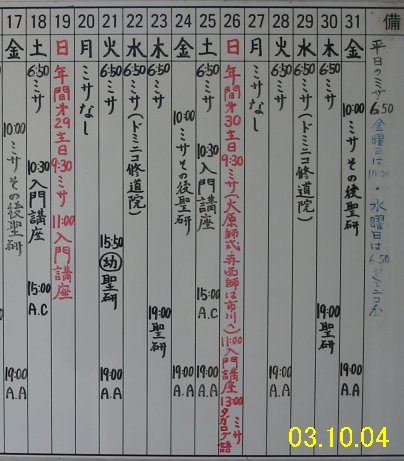 17 18 19 20 21 22 23 24 25 26 27 28 29 30 31 備
金 土 日 月 火 水 木 金 土 日 月 火 水 木 金
10:00 ミサ その後聖研
19:00 A.A
6:50 ミサ
10:30 入門講座
15:00 A.C
年間才29主日 9:30 ミサ 11:00 入門講座
ミサなし
6:50 ミサ
15:50 幼 聖研
19:00 A.A
6:50 ミサ(ドミニコ修道院)
6:50 ミサ
19:00 聖研
10:00 ミサ その後聖研
19:00 A.A
6:50 ミサ
10:30 入門講座
15:00 A.C
19:00 A.A
年間才30主日 9:30 ミサ(大原師式 赤西師は市川へ) 11:00 入門講座 13:00 ミサ タガログ語
ミサなし
6:50 ミサ
19:00 A.A
6:50 ミサ(ドミニコ修道院)
6:50 ミサ
19:00 聖研
10:00 ミサ その後聖研
19:00 A.A
平日のミサ 6:50 金曜日は 10:00・水曜日は 6:50 ドミニコ会
03.10.04